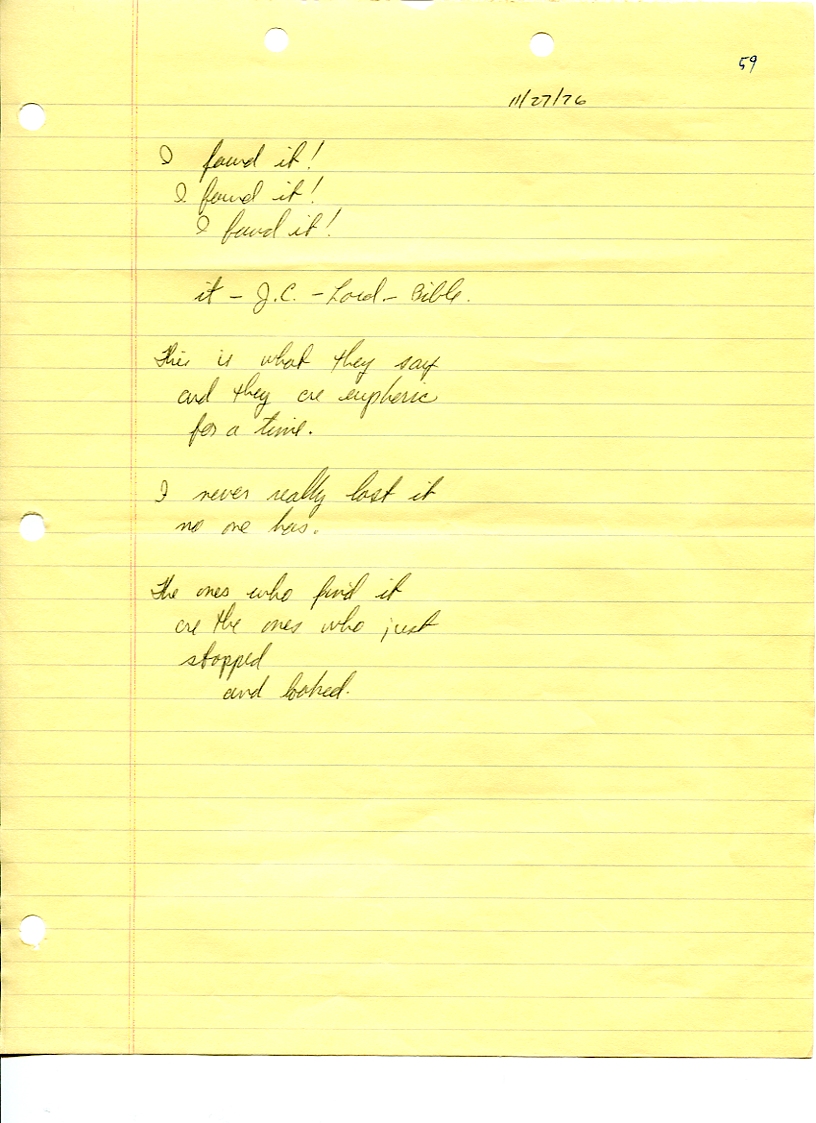 59
11/27/76
I found it!
I found it!
I found it!
it - J.C. - Lord - Bible.
This is what they say
and they are eupheric
for a time.
I never really lost it
no one has.
The ones who find it
are the ones who just
stopped
and looked.